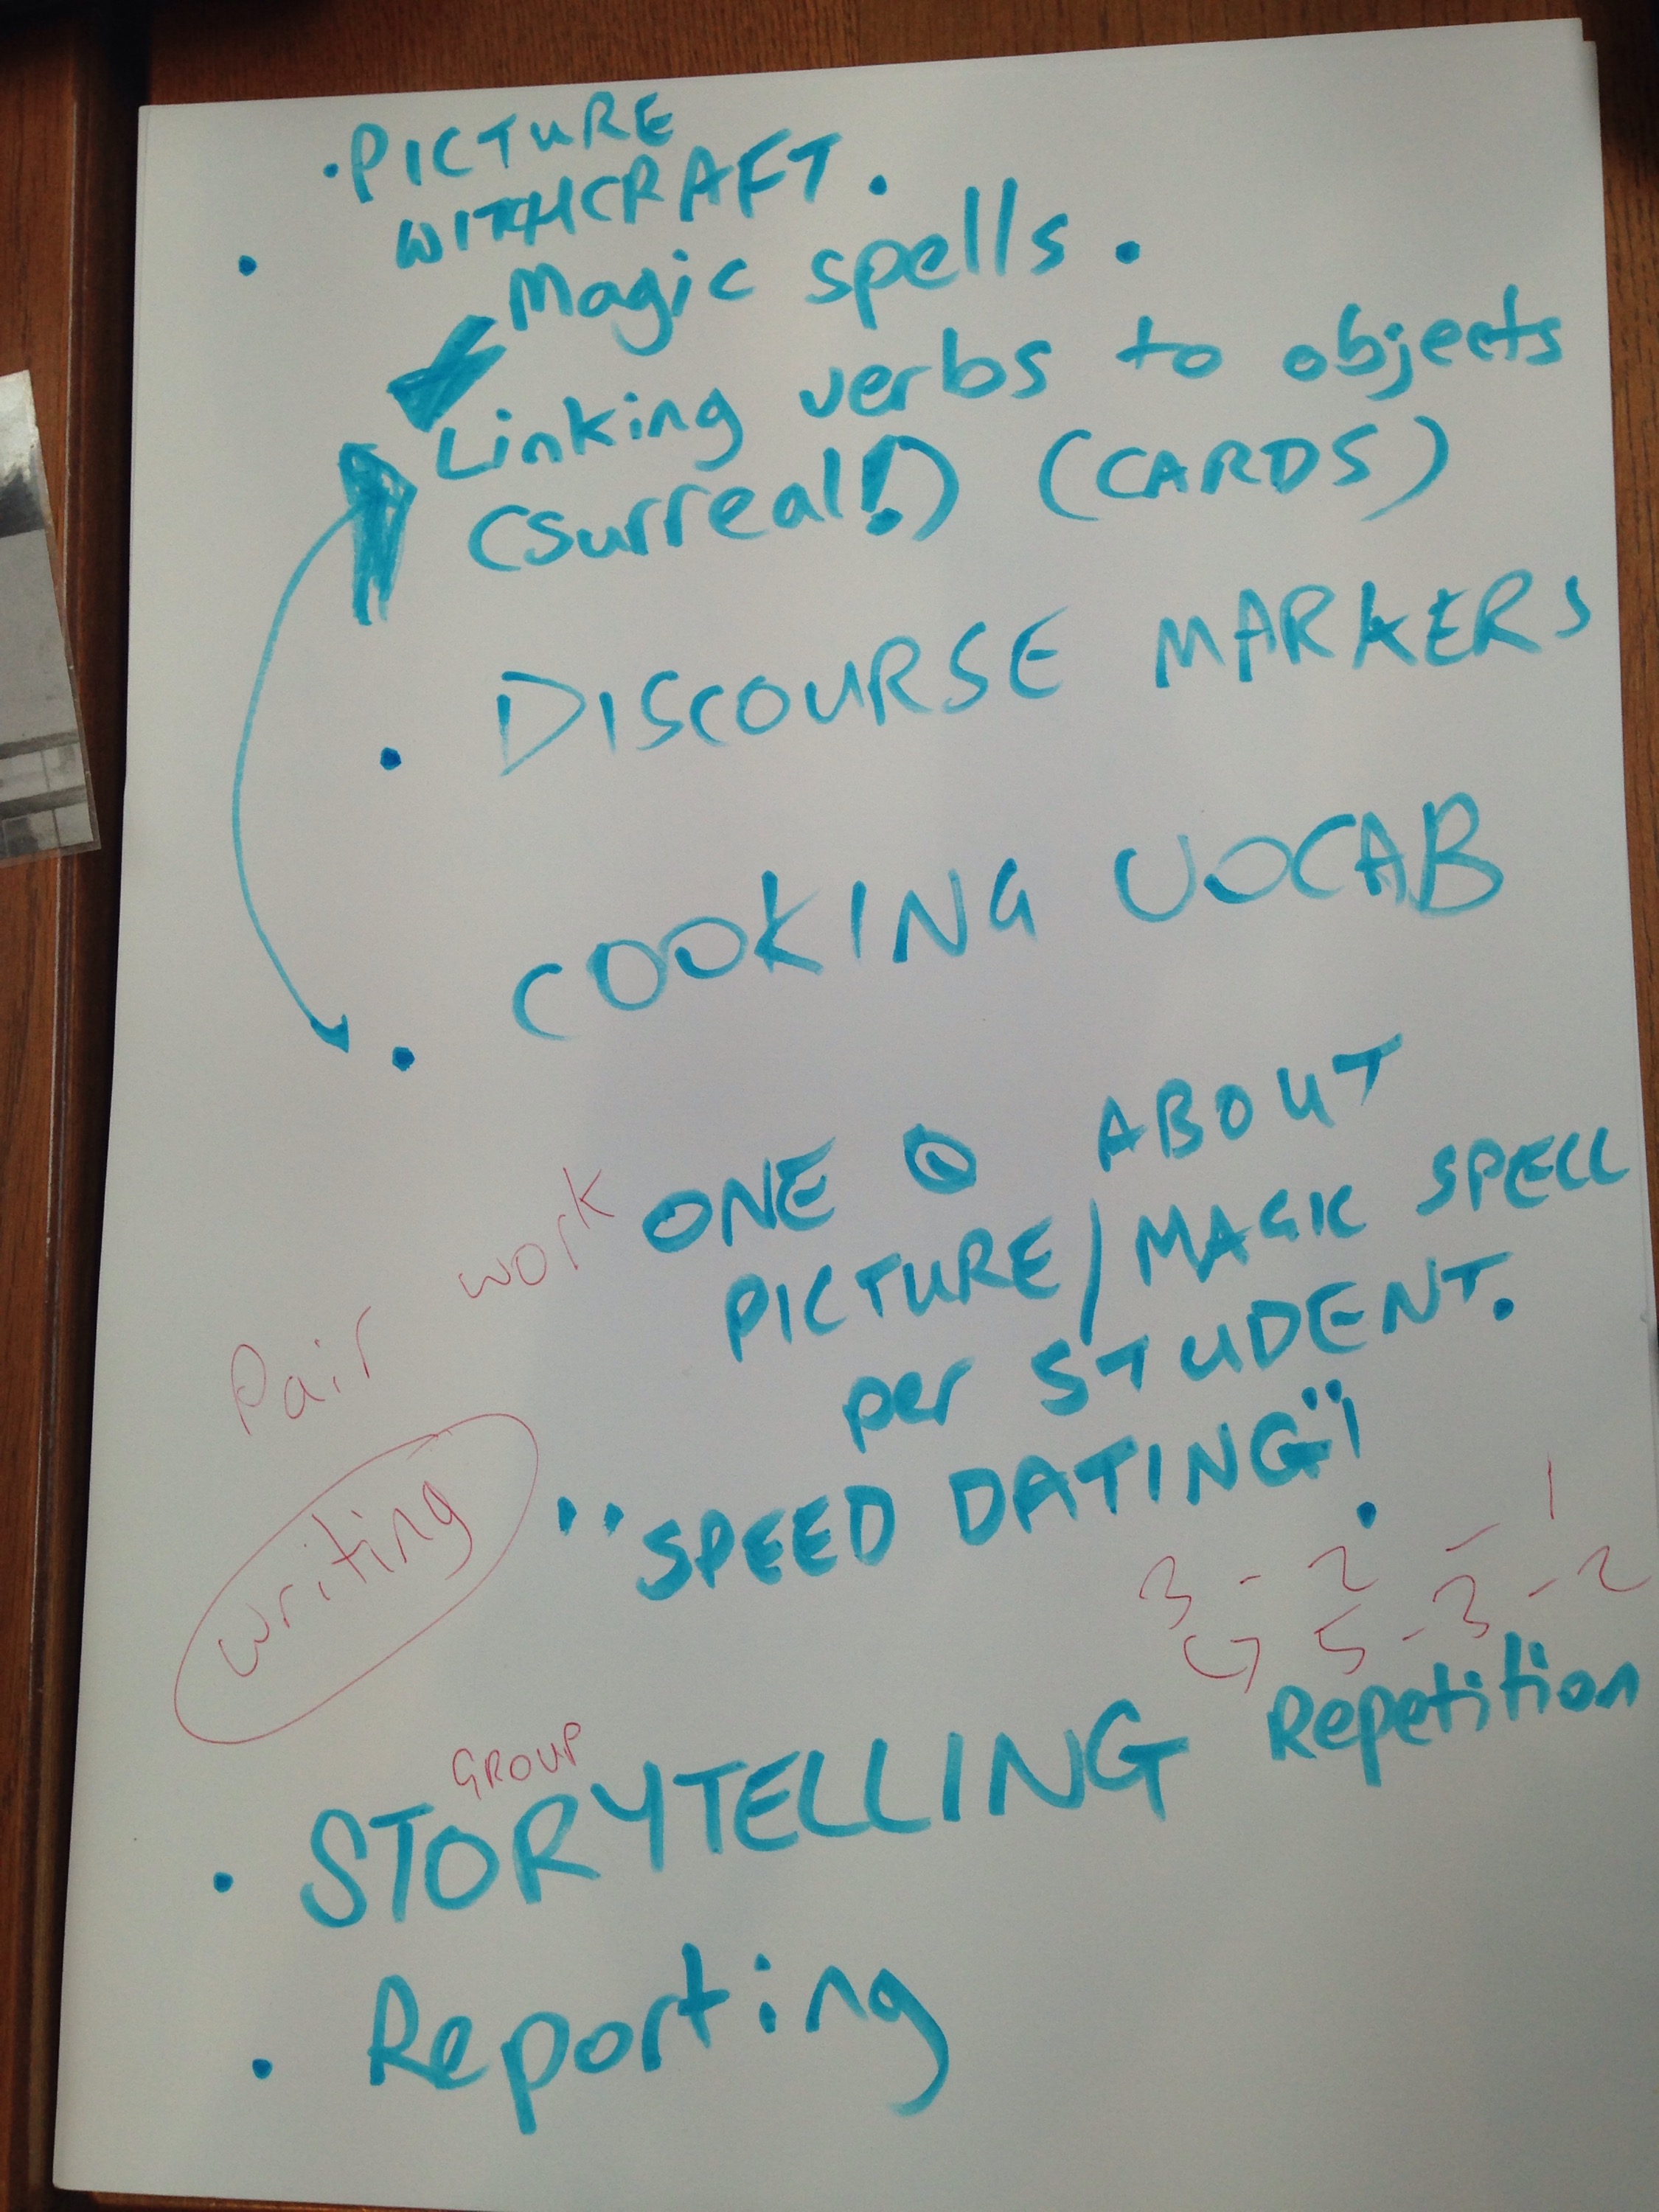 · PICTURE
WITHCRAFT.
· Magic spells.
Linking verbs to objects
(surreal!) (CARDS)
· DISCOURSE MARKERS
· COOKING VOCAB
Pair work
ONE Q ABOUT
PICTURE/MAGIC SPELL
per STUDENT.
"SPEED DATING"!
writing
3 - 2 - 1
5 - 3 - 2
GROUP
· STORYTELLING Repetition
· Reporting